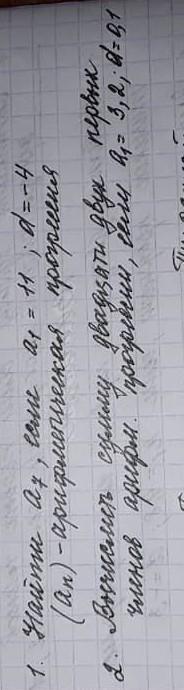 1. Найти a₇, если a₁ = 11 ; d = -4
(aₙ) - арифметическая прогрессия
2. Вычислить сумму двадцати двух первых
членов арифм. прогрессии, если a₁ = 3,2 ; d = 0,1